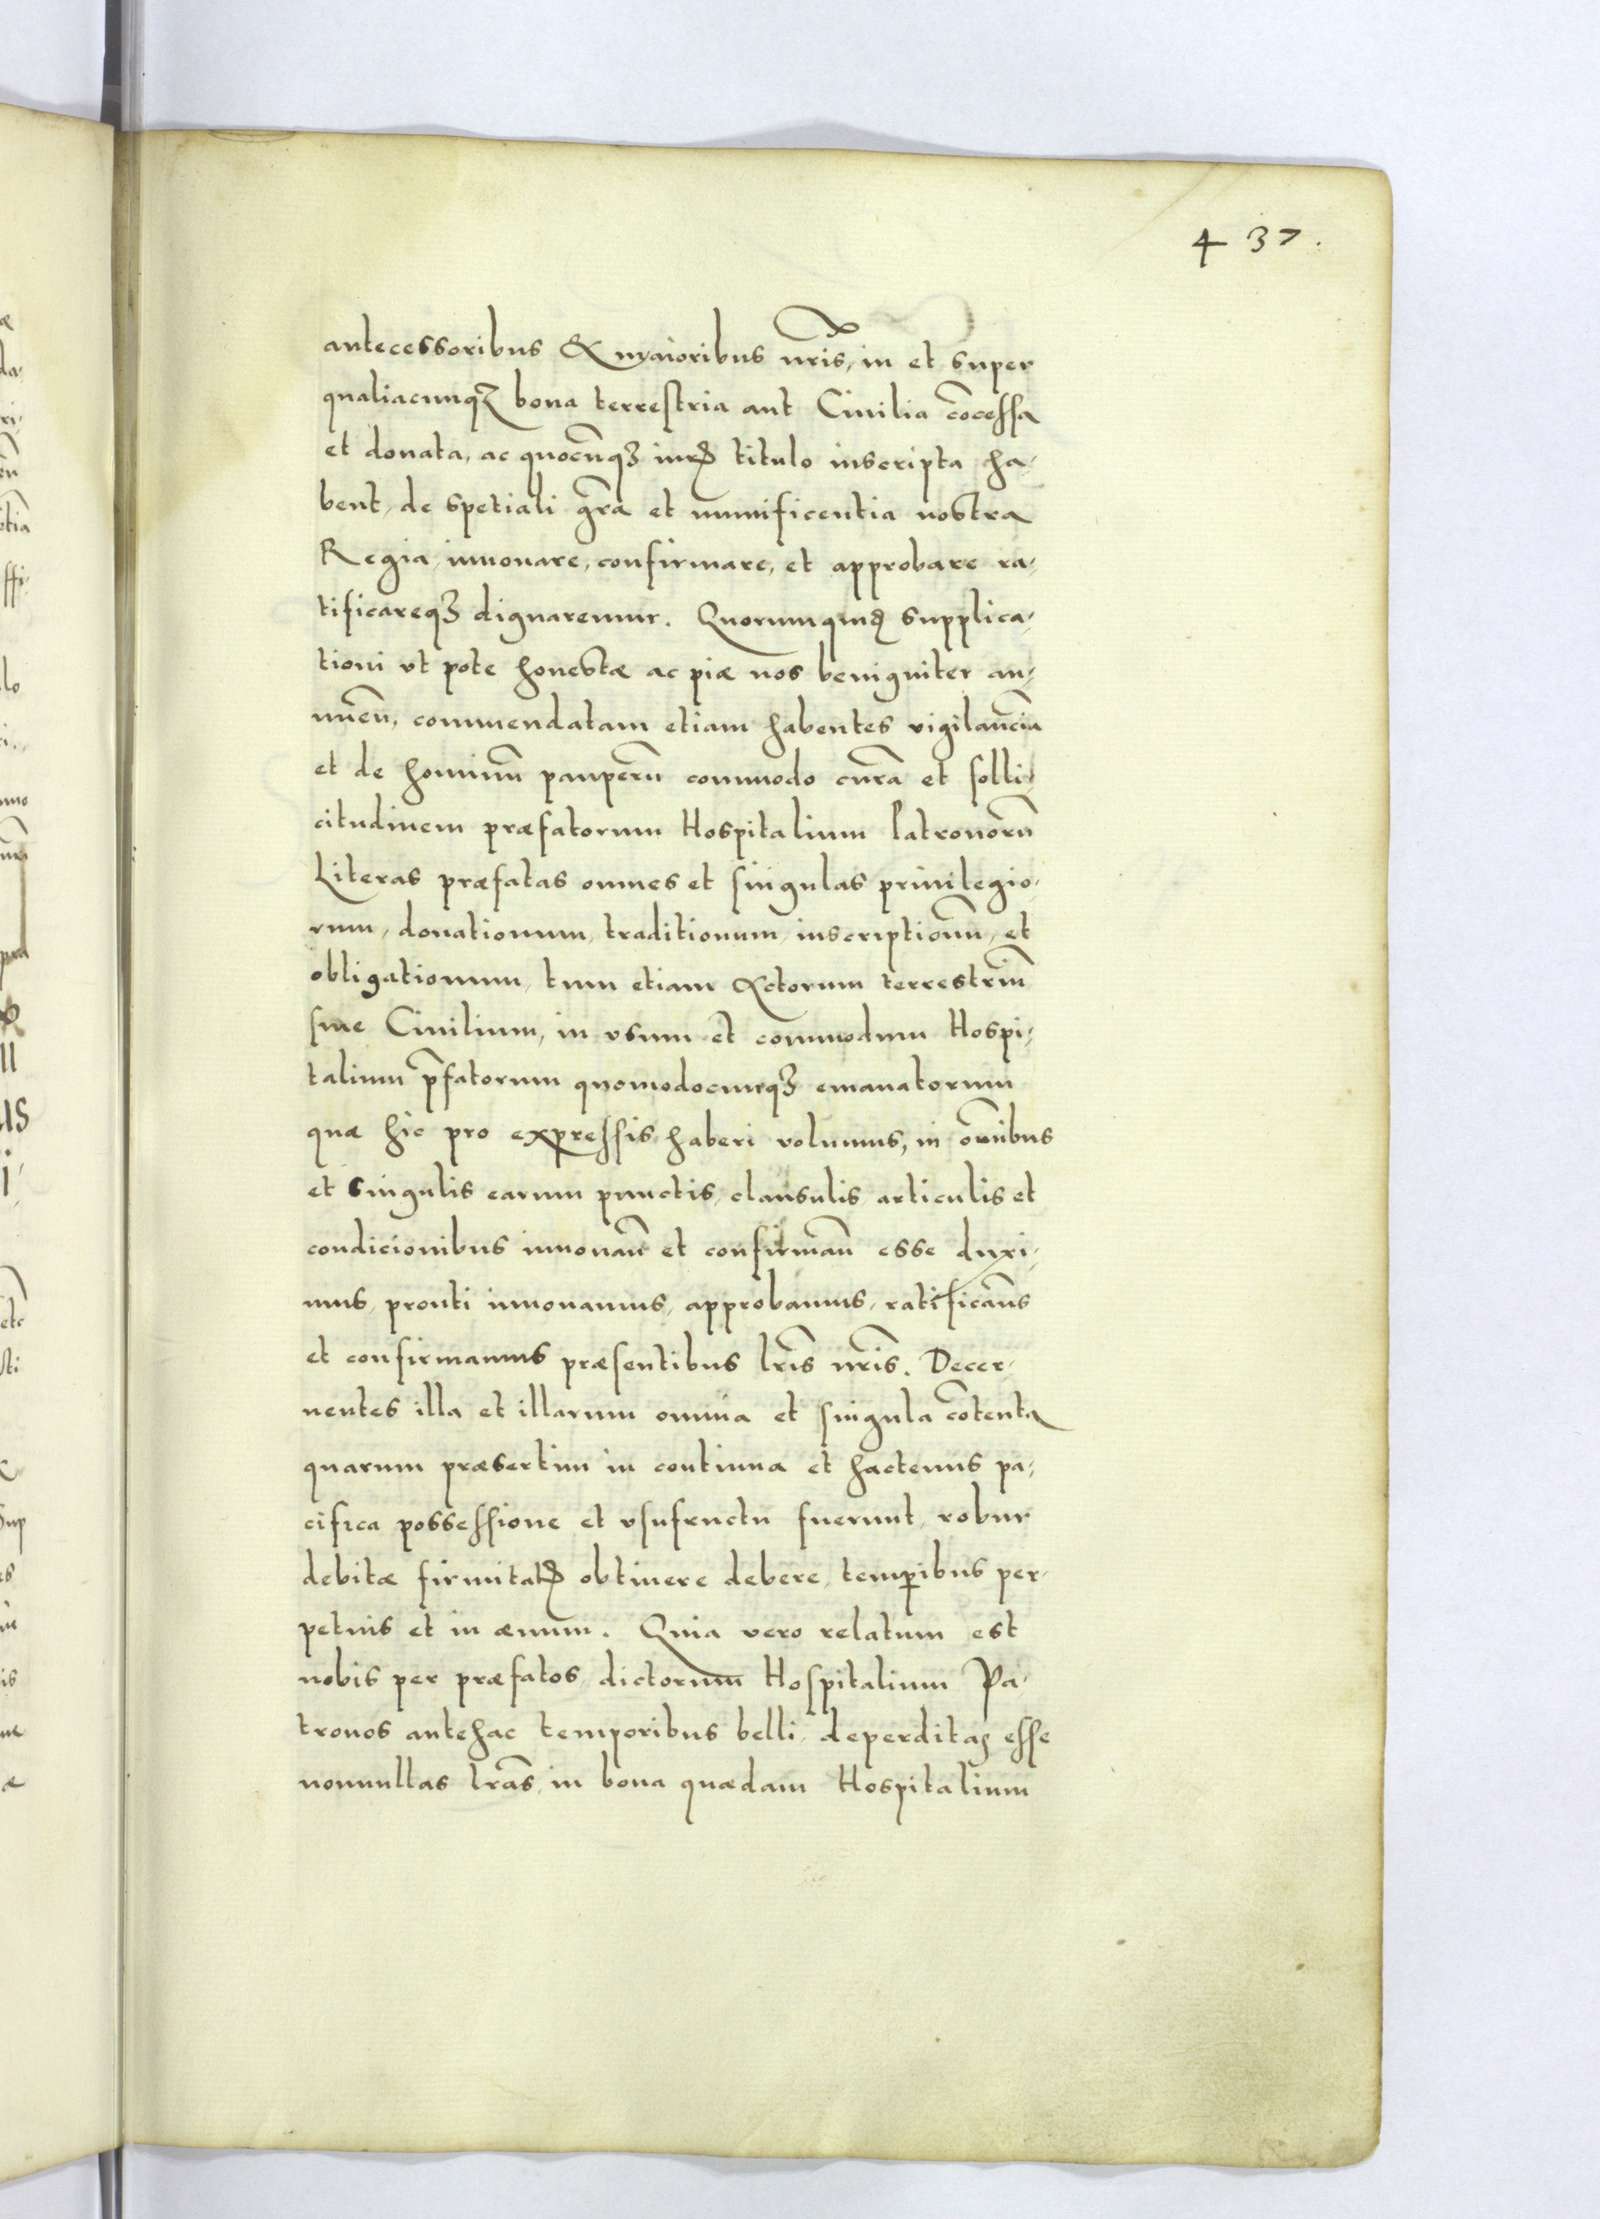 437.
antecessoribus & maioribus nr̃is, in et super
qualiacunqꝫ bona terrestria aut Ciuilia cõcessa
et donata, ac quocũqꝫ iurꝭ titulo inscripta ha-
bent, de spetiali gr̃a et munificentia nostra
Regia, innouare, confirmare, et approbare ra-
tificareqꝫ dignaremur. Quorumquidꝫ supplica-
tioni vt pote honestæ ac piæ nos benigniter an-
nueñ, commendatam etiam habentes vigilanciã
et de hominũ pauperũ commodo curã et solli-
citudinem præfatorum Hospitalium Patronorũ
Literas præfatas omnes et singulas priuilegio-
rum, donationum, traditionum, inscriptionũ, et
obligationum, tum etiam Actorum terrestriũ
siue Ciuilium, in vsum et commodum Hospi-
talium p̃fatorum quomodocunqꝫ emanatorum
quæ hic pro expressis haberi volumus, in om̃ibus
et singulis earum punctis, clausulis articulis et
condicionibus innouañ et confirmañ esse duxi-
mus, prouti innouamus, approbamus, ratificam̃s
et confirmamus præsentibus lr̃is nr̃is. Decer-
nentes illa et illarum omnia et singula cõtenta
quarum præsertim in continua et hactenus pa-
cifica possessione et vsufructu fuerunt, robur
debitæ firmitatꝭ obtinere debere, temꝑibus per-
petuis et in æuum. Quia vero relatum est
nobis per præfatos dictorum Hospitalium Pa-
tronos antehac temporibus belli, deperditas esse
nonnullas lr̃as, in bona quædam Hospitalium